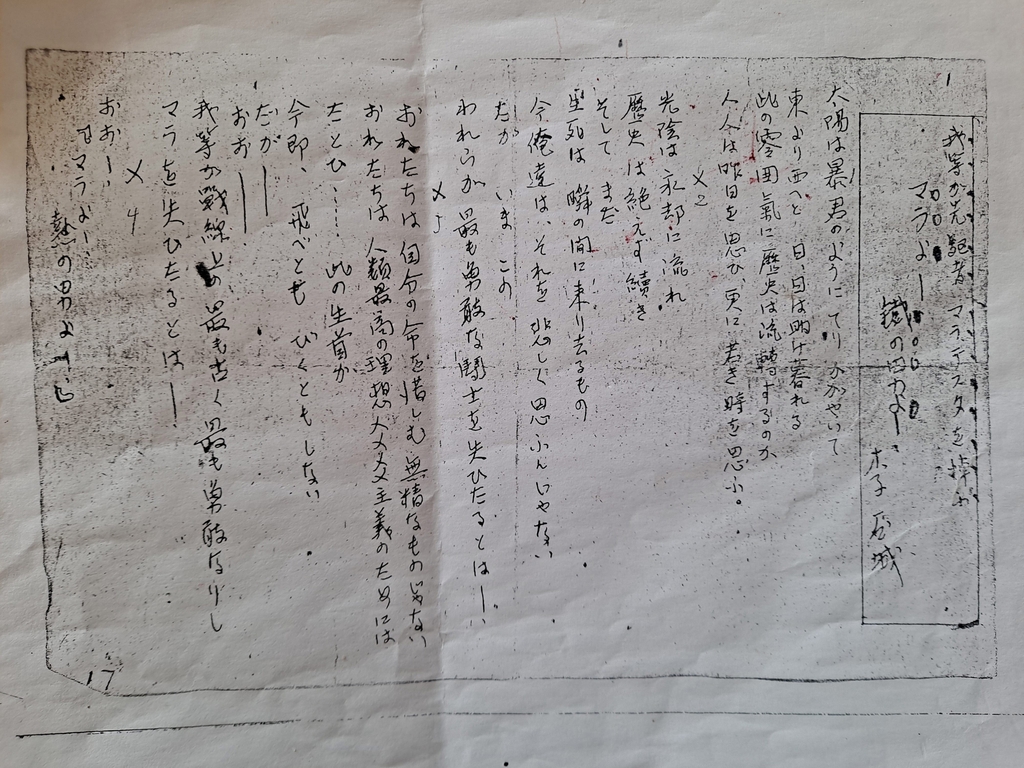 1
我等が先駆者 マラテスタを悼ふ
マラよー
鐵の男よー
太陽は暴君のように てりかがやいて
東より西へと 日、日は明け暮れる
此の雰囲氣に歴史は流轉するのか
人々は昨日を思ひ、更に若き時を思ふ。
×2
光陰は永却に流れ
歴史は絶えず續き
そして また
生死は 瞬の間に来り去るもの
今俺達は、それを悲しく思ふんじゃない
たが いま この
われらが 最も勇敢な鬪士を失ひたるとはー
×3
おれたちは自分の命を惜しむ無精なものぢゃない
おれたちは 人類最高の理想××××主義のためには
たとひ…… 此の生首が
今即、飛べとも びくともしない
だが——
おお——
我等が戰線上の最も古く最も勇敢なりし
マラを失ひたるとは——
×4
おおー
マラよー
熱の男よー
17